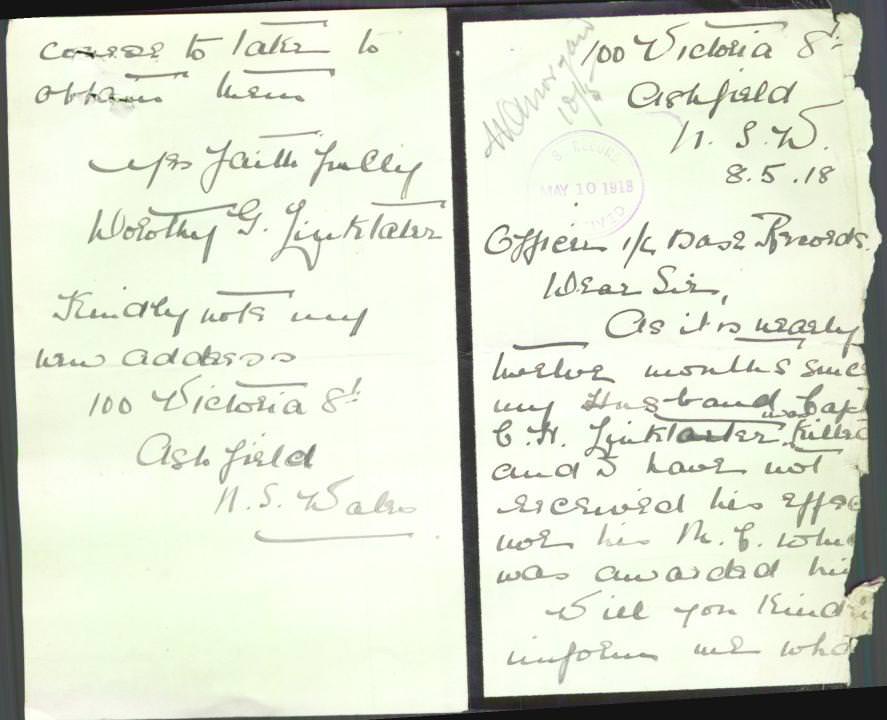 100 Victoria St
Ashfield
N. S. W.
8.5.18
MAY 10 1918
Officer i/c Base Records.
Dear Sir,
As it is nearly
twelve months since
my Husband Capt
C. H. Linklater was killed
and I have not
received his effec
nor his M. C. whi
was awarded hi
Will you kind
inform me wha
course to take to
obtain them
Yrs Faithfully
Dorothy G. Linklater
Kindly note my
new address
100 Victoria St
Ashfield
N. S. Wales